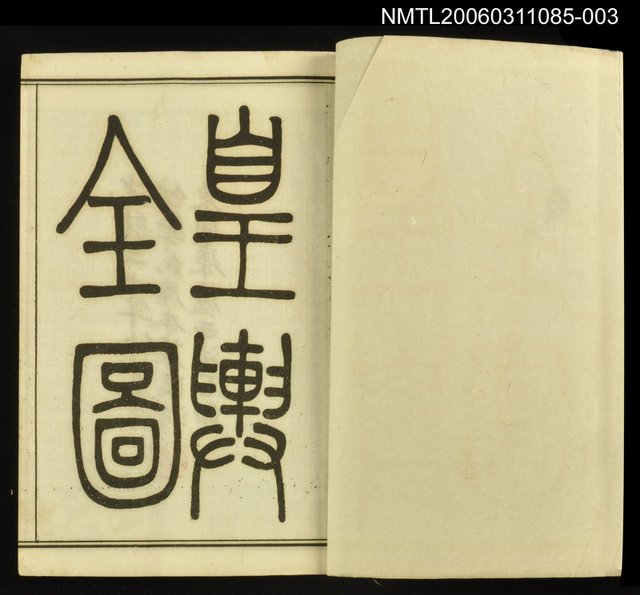 NMTL20060311085-003
皇輿
全圖